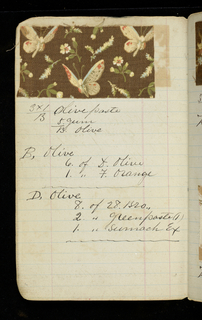 Olive paste
5 gum
B. Olive
B, Olive
6. of D. Olive
1. " F. Orange
D. Olive
8. of 28. Bro,,
2 " Green paste
1. " Sumach Ex